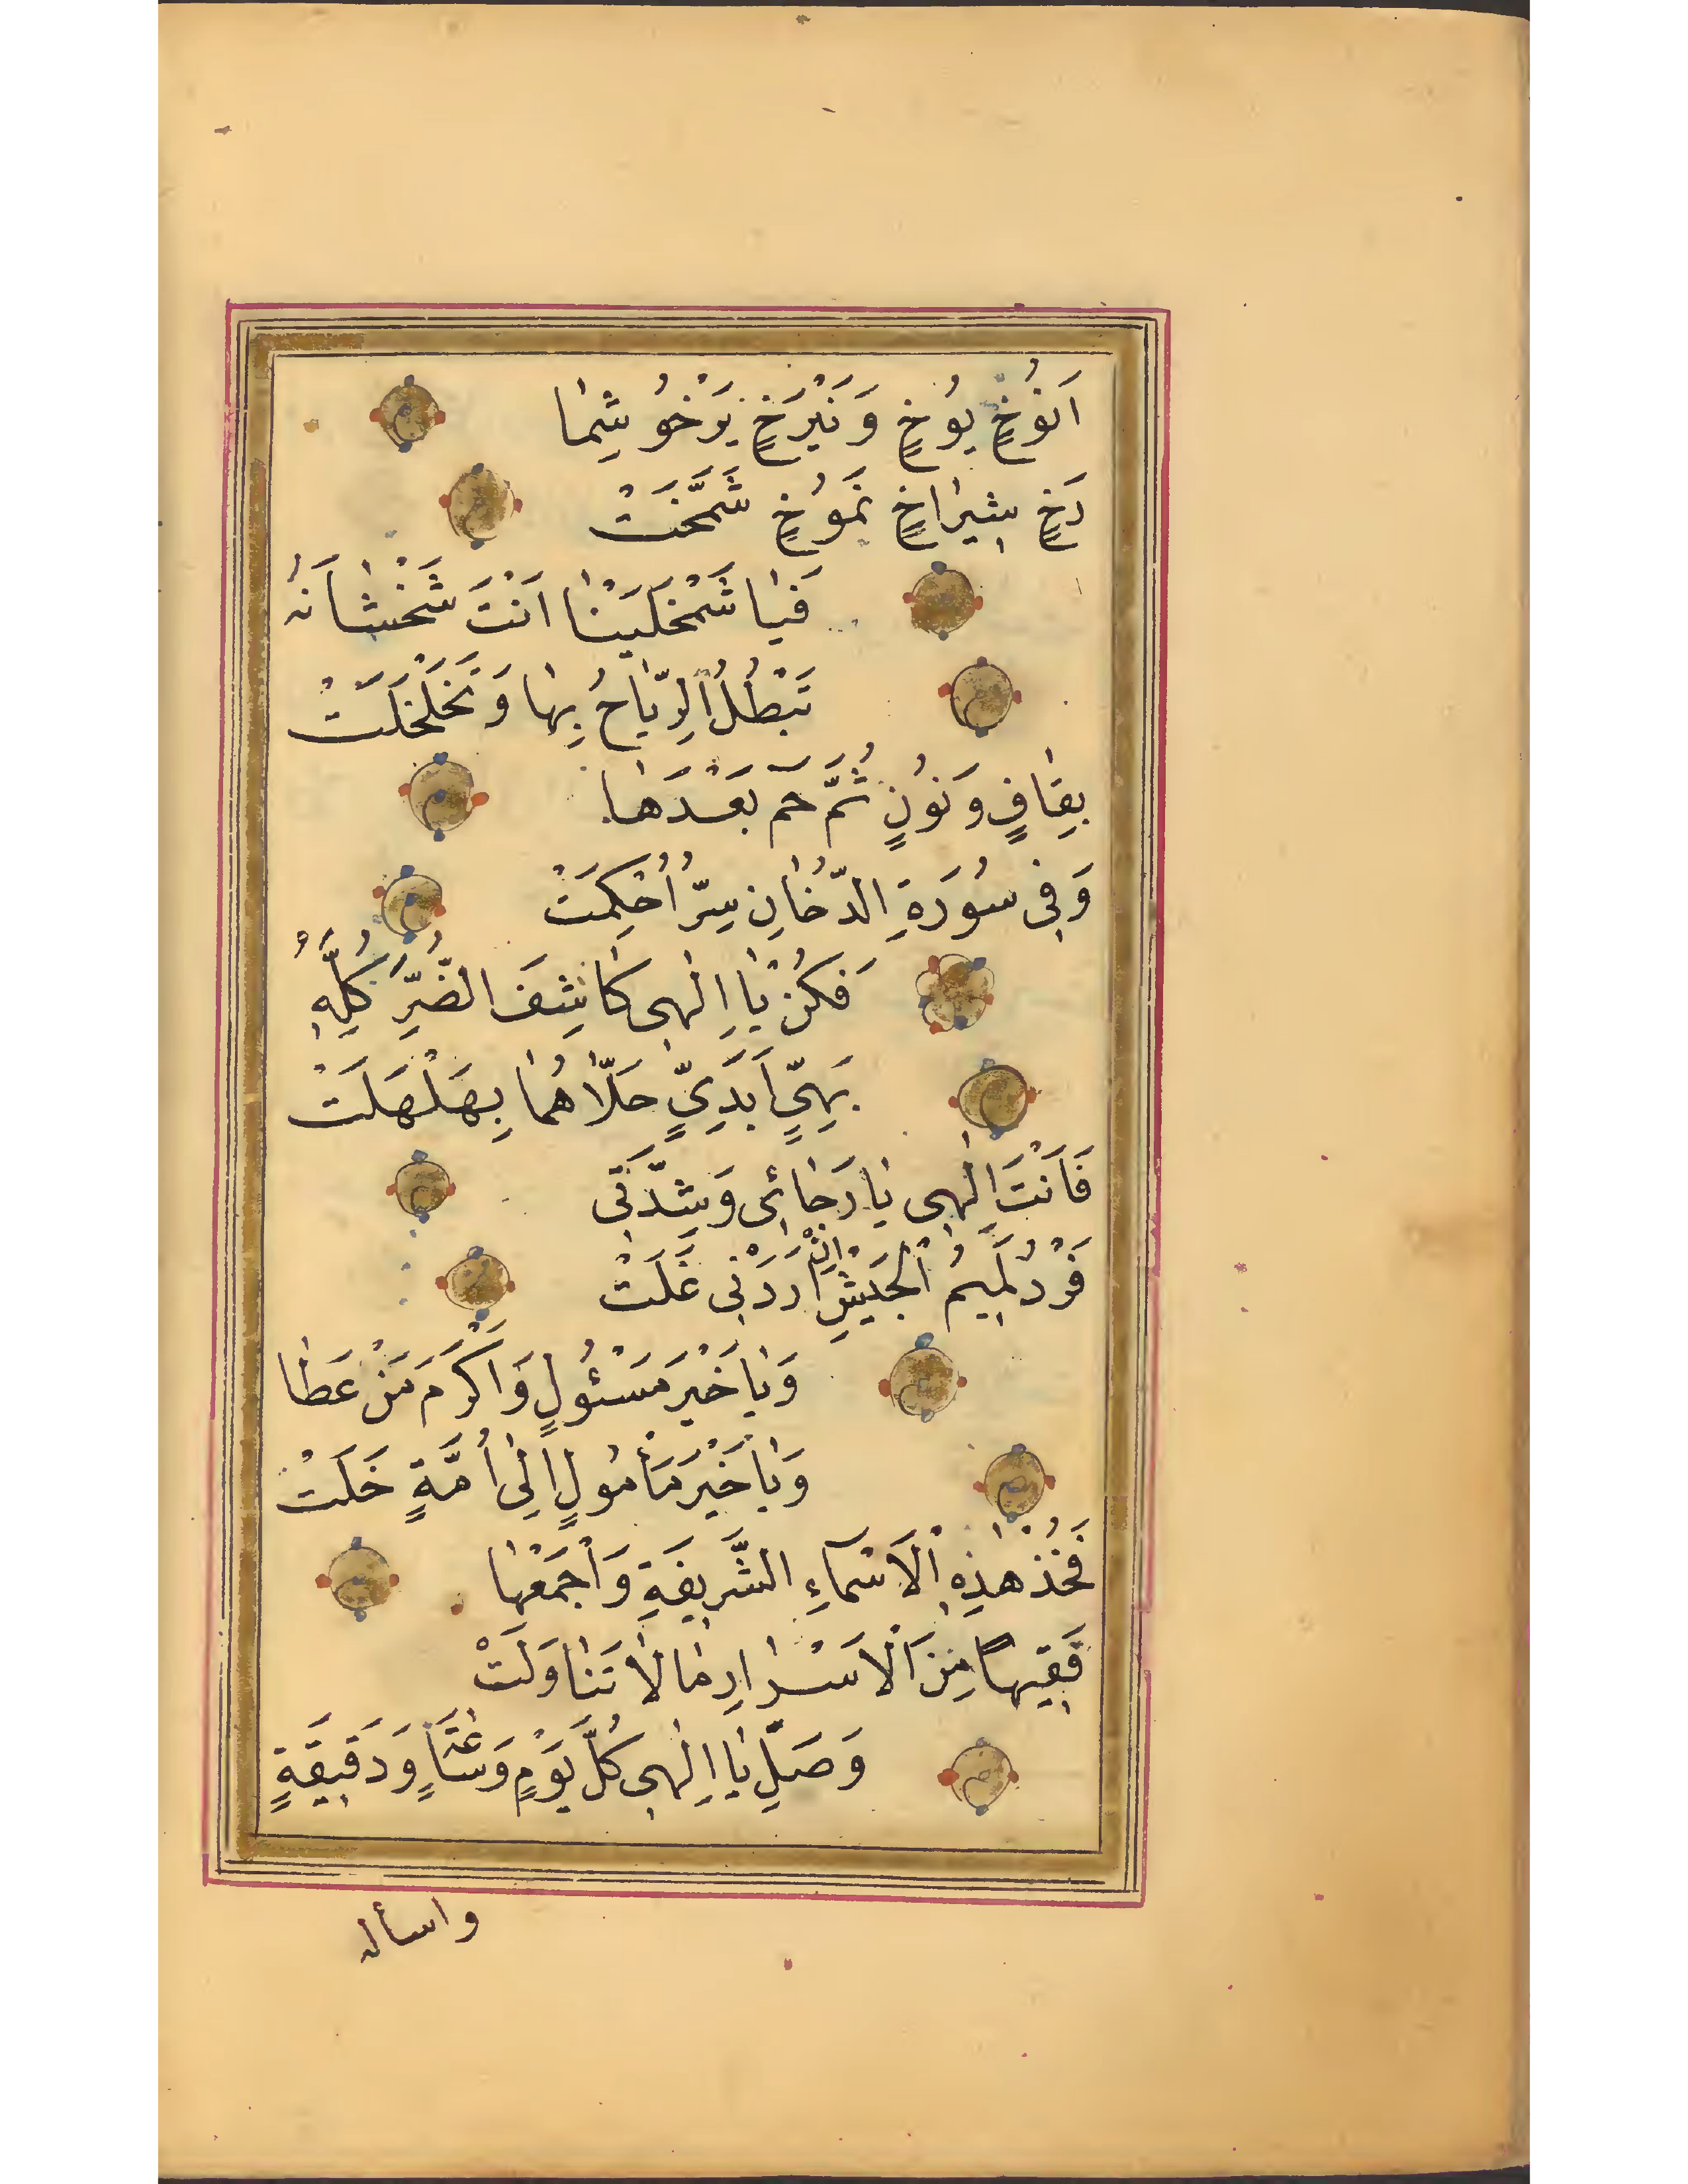 اَنُوخٍ يُوخٍ وَنَيْرَخٍ يَرْخُو شِمٰا
دَخٍ بِشِيرٰاخٍ نَمُوخٍ شَمَّخَتْ
فَيٰا شَمْخَلَيْنٰا اَنْتَ شَخْشٰا اَنَهُ
تَبْطُلُ الرِّيٰاحُ بِهٰا وَتَخَلْخَلَتْ
بِقٰافٍ وَنُونٍ ثُمَّ حم بَعْدَهٰا
وَفِي سُورَةِ الدُّخٰانِ سِرُّ اُحْكِمَتْ
فَكُنْ يٰا اِلٰهِى كٰاشِفَ الضُّرِّ كُلِّهِ
بِهِيٍّ اَبَدِيٍّ حَلّاٰ هُمٰا بِهَلْهَلَتْ
فَاَنْتَ اِلٰهِى يٰا رَجٰائِى وَشِدَّتِى
فَرُدَّ لَمِيمُ الْجَيْشِ اِنْ اَرَدْنِى غَلَتْ
وَيٰا خَيْرَ مَسْئُولٍ وَاَكْرَمَ مَنْ عَطٰا
وَيٰا خَيْرَ مَأْمُولٍ اِلٰى اُمَّةٍ خَلَتْ
فَخُذْ هٰذِهِ الْاَسْمٰاءِ الشَّرِيفَةِ وَاَجْمَعْهٰا
فَفِيهٰا مِنَ الْاَسْرٰارِ مٰا لاٰ تَنٰاوَلَتْ
وَصَلِّ يٰا اِلٰهِى كُلَّ يَوْمٍ وَسٰاعَةٍ وَدَقِيقَةٍ
واسأله